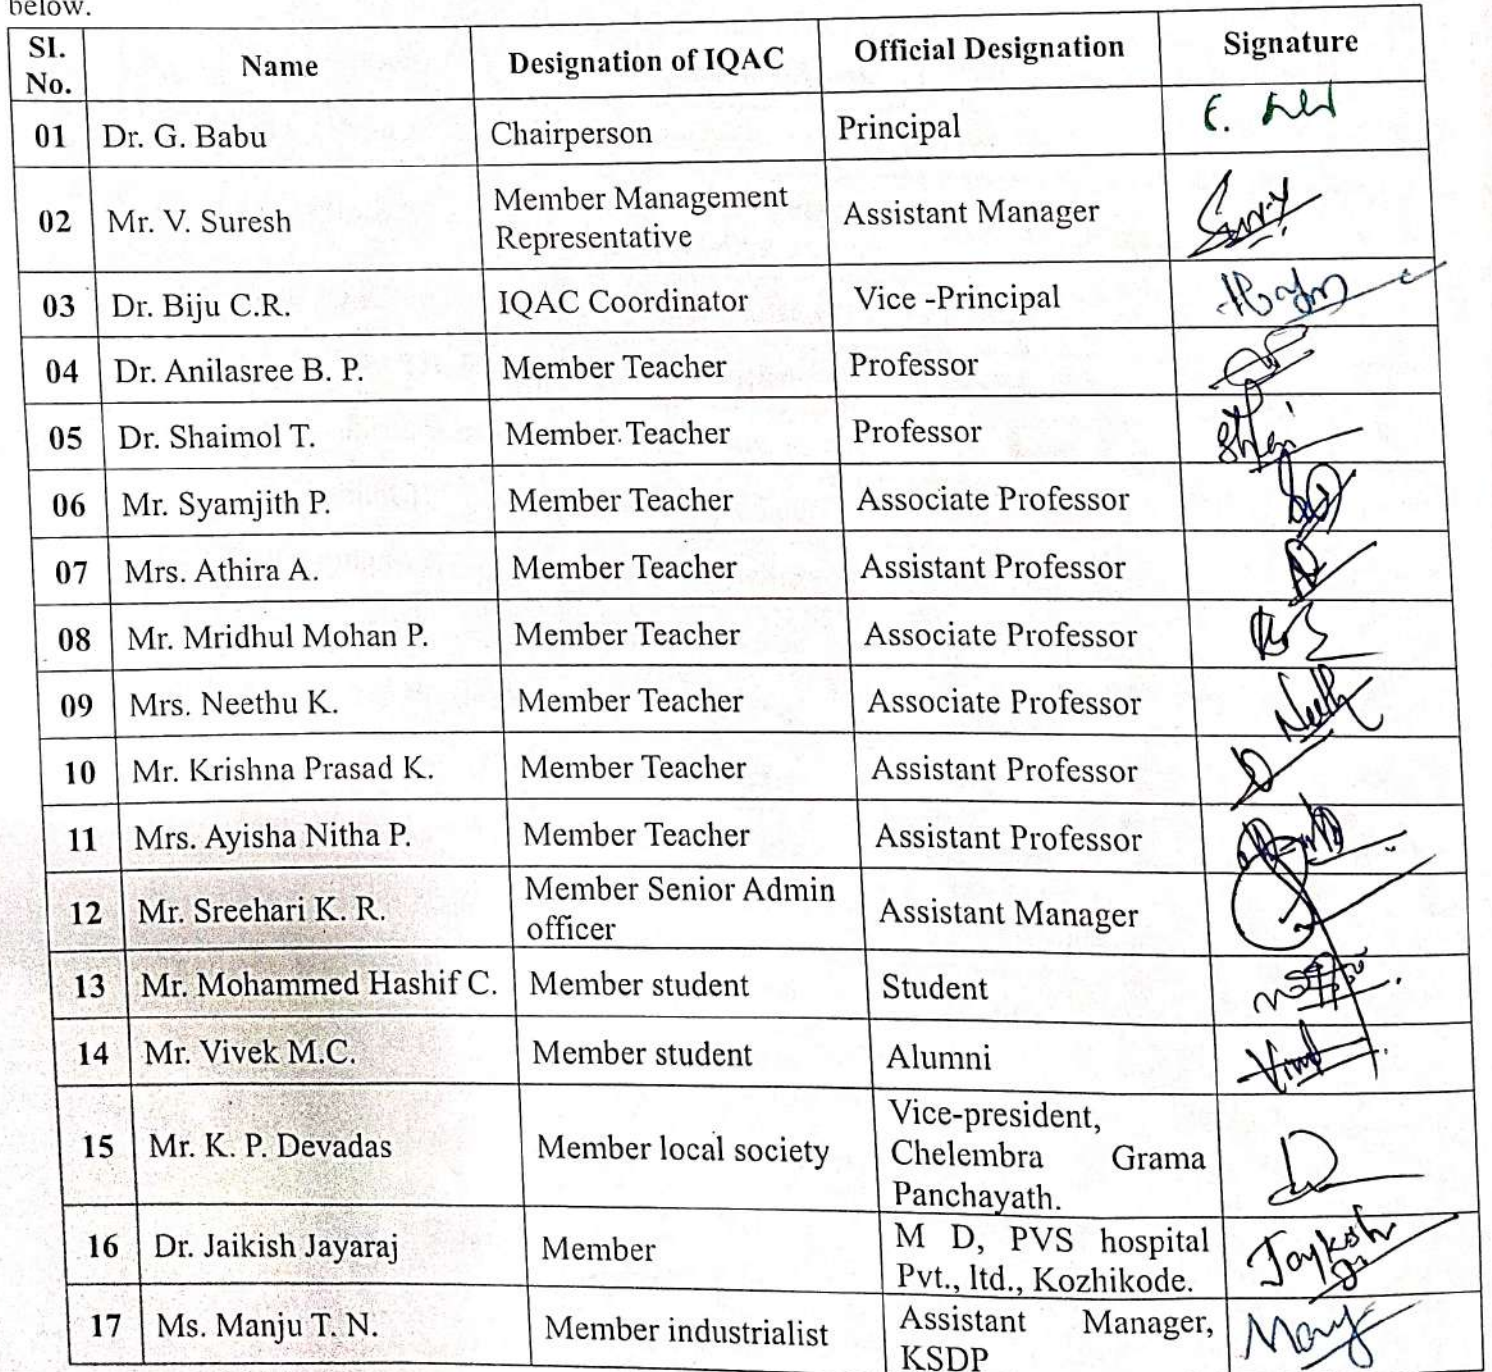 below.
Sl. No. Name Designation of IQAC Official Designation Signature
01 Dr. G. Babu Chairperson Principal
02 Mr. V. Suresh Member Management Representative Assistant Manager
03 Dr. Biju C.R. IQAC Coordinator Vice -Principal
04 Dr. Anilasree B. P. Member Teacher Professor
05 Dr. Shaimol T. Member Teacher Professor
06 Mr. Syamjith P. Member Teacher Associate Professor
07 Mrs. Athira A. Member Teacher Assistant Professor
08 Mr. Mridhul Mohan P. Member Teacher Associate Professor
09 Mrs. Neethu K. Member Teacher Associate Professor
10 Mr. Krishna Prasad K. Member Teacher Assistant Professor
11 Mrs. Ayisha Nitha P. Member Teacher Assistant Professor
12 Mr. Sreehari K. R. Member Senior Admin officer Assistant Manager
13 Mr. Mohammed Hashif C. Member student Student
14 Mr. Vivek M.C. Member student Alumni
15 Mr. K. P. Devadas Member local society Vice-president, Chelembra Grama Panchayath.
16 Dr. Jaikish Jayaraj Member M D, PVS hospital Pvt., ltd., Kozhikode.
17 Ms. Manju T. N. Member industrialist Assistant Manager, KSDP